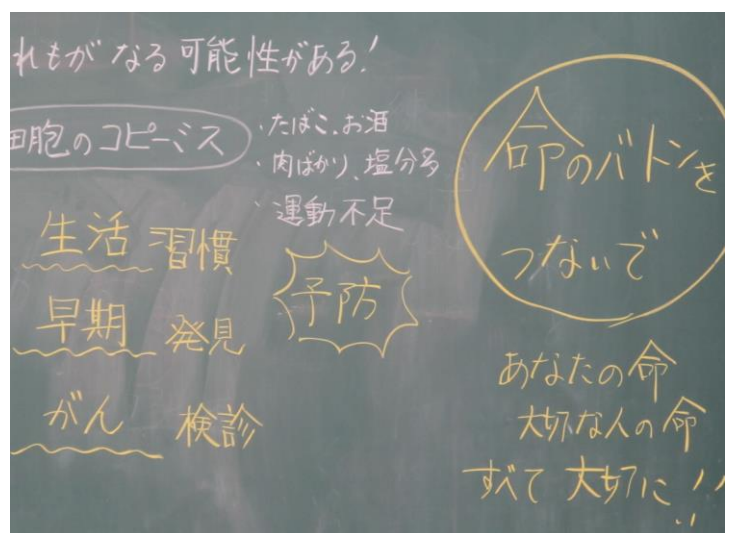 れもがなる可能性がある!
細胞のコピーミス
・たばこ、お酒
・肉ばかり、塩分多
・運動不足
生活習慣
早期発見
がん検診
予防
命のバトンを
つないで
あなたの命
大切な人の命
すべて大切に!!